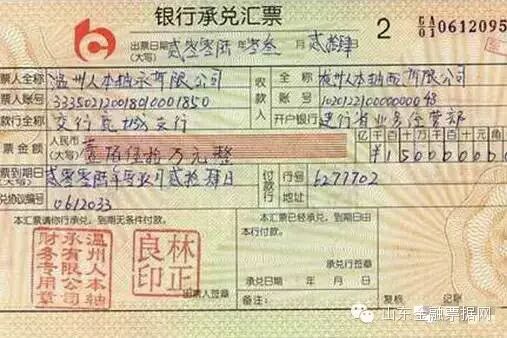 银行承兑汇票 2 GA/01 0612095
出票日期(大写) 贰零零陆 年 零叁 月 贰拾肆
票人全称 温州人本轴承有限公司 收款人 全称 杭州人本轴承有限公司
票人账号 333502120018010001850 账号
款行全称 交行瓦城支行 开户银行 建行省业务经营部
票金额 人民币(大写) 壹佰伍拾万元整 亿千百十万千百十元角
¥15000000
票到期日(大写) 贰零零陆年零玖月贰拾肆日 付款行 行号 6277702
兑协议编号 0612033
本汇票请你行承兑,到期无条件付款。 本汇票已经承兑,到期日由
温州人本轴承有限公司财务专用章
林正良印
承兑行签章
出票人签章 承兑日期 年 月 日
备注: 复核 记账
山东金融票据网